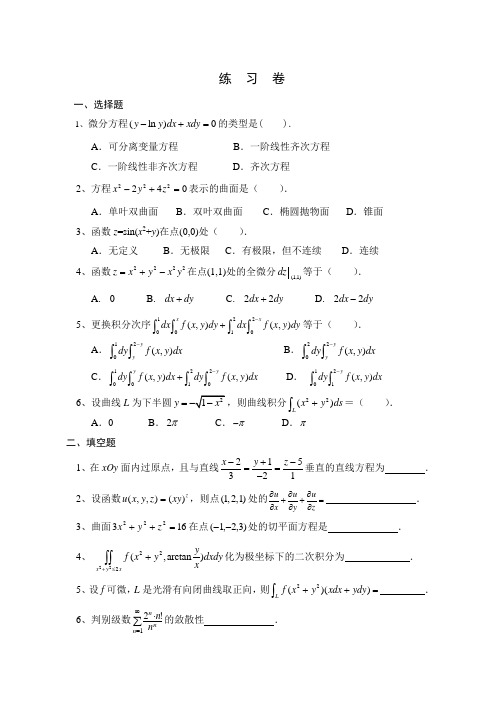 练 习 卷
一、选择题
1、微分方程 (y − ln y)dx + xdy = 0 的类型是( ).
A.可分离变量方程 B.一阶线性齐次方程
C.一阶线性非齐次方程 D.齐次方程
2、方程 x² − 2y² + 4z² = 0 表示的曲面是( ).
A.单叶双曲面 B.双叶双曲面 C.椭圆抛物面 D.锥面
3、函数 z=sin(x²+y)在点(0,0)处( ).
A.无定义 B.无极限 C.有极限,但不连续 D.连续
4、函数 z = x² + y² − x²y² 在点(1,1)处的全微分 dz|₍₁,₁₎ 等于( ).
A. 0 B. dx + dy C. 2dx + 2dy D. 2dx − 2dy
5、更换积分次序 ∫₀¹dx∫₀ˣ f(x, y)dy + ∫₁²dx∫₀²⁻ˣ f(x, y)dy 等于( ).
A. ∫₀¹dy∫_y^{2−y} f(x, y)dx B. ∫₀²dy∫_y^{2−y} f(x, y)dx
C. ∫₀¹dy∫₀^y f(x, y)dx + ∫₁²dy∫₀^{2−y} f(x, y)dx D. ∫₀¹dy∫₁^{2−y} f(x, y)dx
6、设曲线 L 为下半圆 y = −√(1−x²),则曲线积分 ∫_L (x² + y²)ds =( ).
A.0 B. 2π C. −π D. π
二、填空题
1、在 xOy 面内过原点,且与直线 (x−2)/3 = (y+1)/−2 = (z−5)/1 垂直的直线方程为 .
2、设函数 u(x, y, z) = (xy)^z,则点 (1,2,1) 处的 ∂u/∂x + ∂u/∂y + ∂u/∂z = .
3、曲面 3x² + y² + z² = 16 在点 (−1,−2,3) 处的切平面方程是 .
4、 ∬_{x²+y²≤2x} f(x² + y², arctan y/x)dxdy 化为极坐标下的二次积分为 .
5、设 f 可微,L 是光滑有向闭曲线取正向,则 ∫_L f(x² + y²)(xdx + ydy) = .
6、判别级数 ∑_{n=1}^∞ 2ⁿ·n!/nⁿ 的敛散性 .